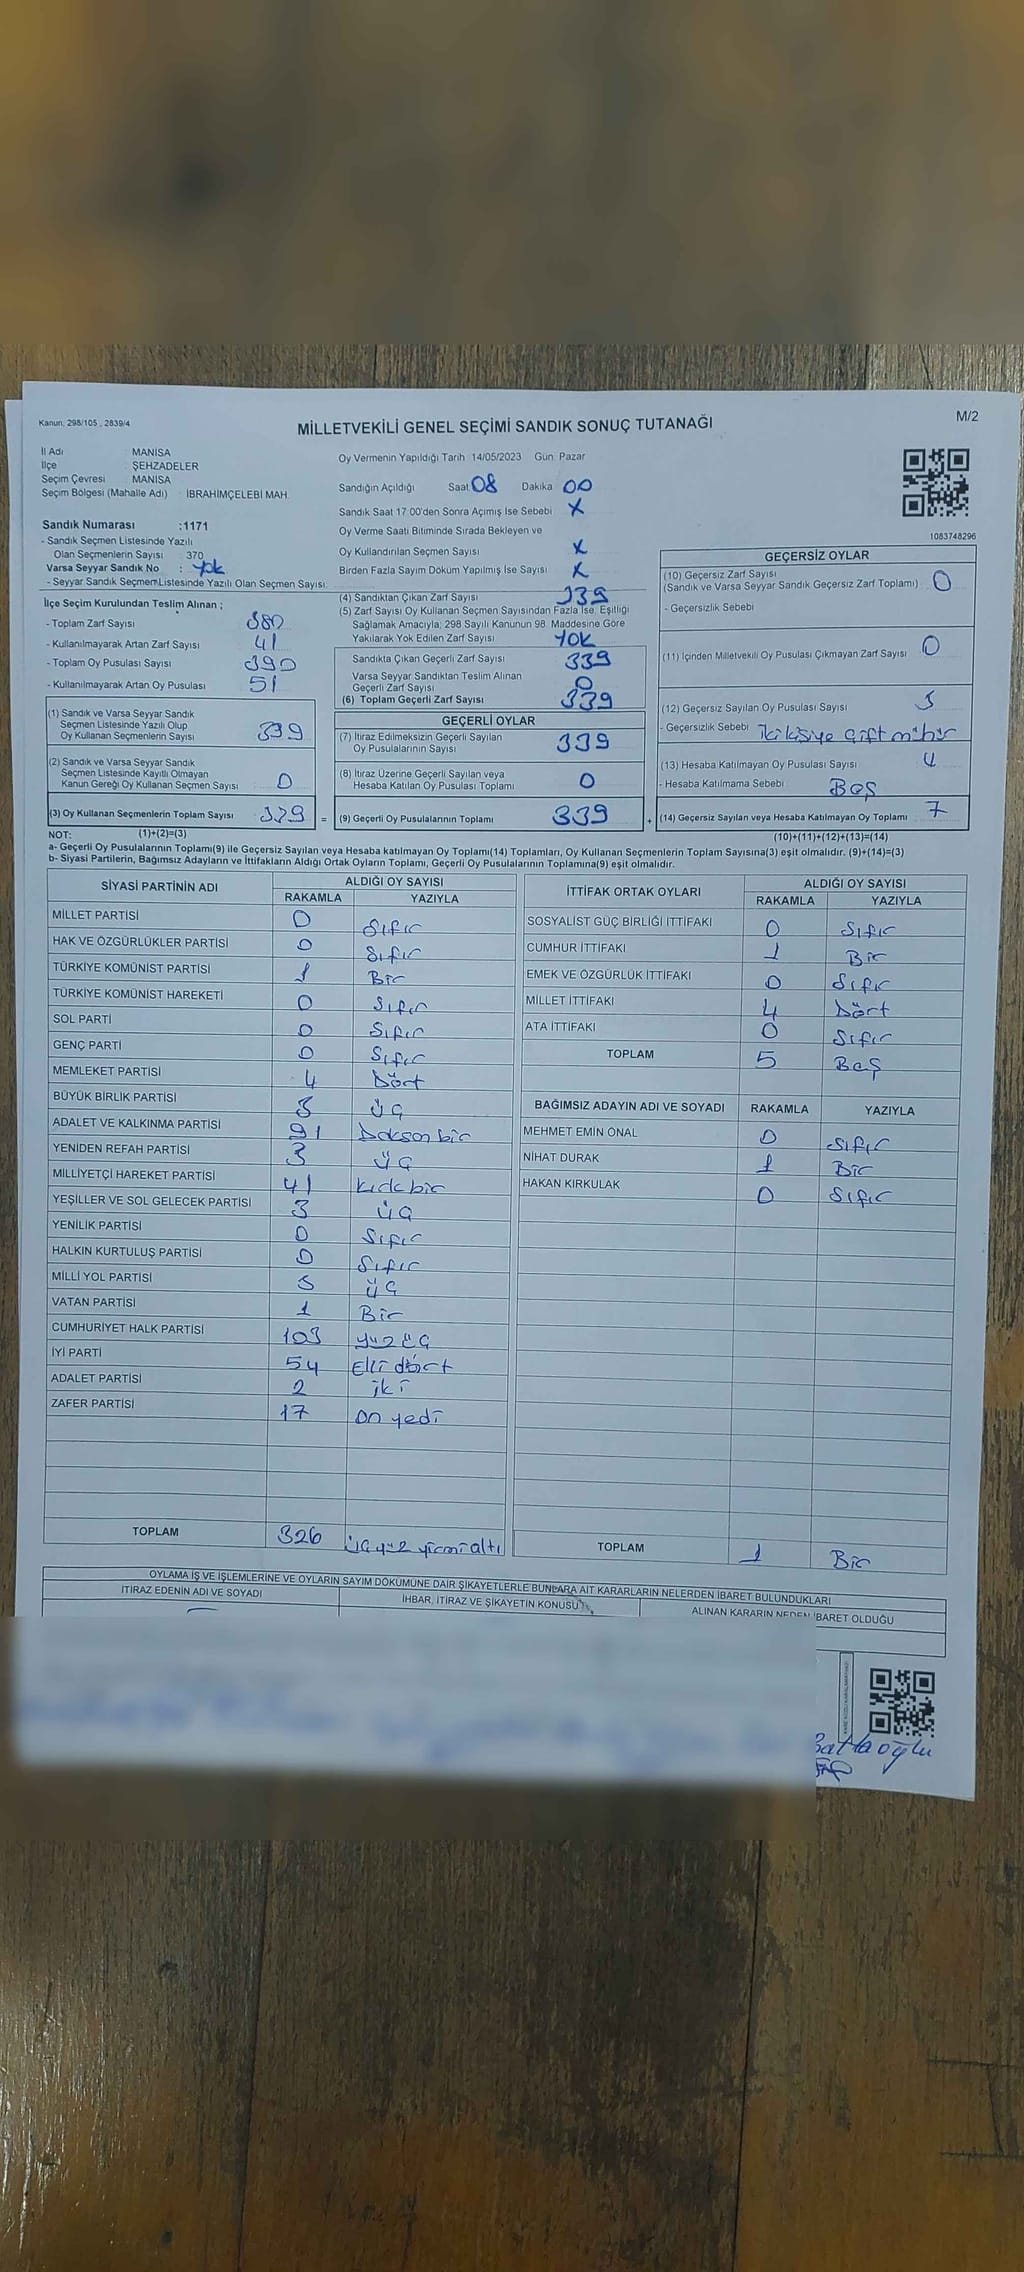 Kanun, 298/105 , 2839/4
M/2
MİLLETVEKİLİ GENEL SEÇİMİ SANDIK SONUÇ TUTANAĞI
İl Adı MANİSA
İlçe : ŞEHZADELER
Seçim Çevresi MANİSA
Seçim Bölgesi (Mahalle Adı) : İBRAHİMÇELEBİ MAH.
Sandık Numarası :1171
- Sandık Seçmen Listesinde Yazılı
Olan Seçmenlerin Sayısı : 370
Varsa Seyyar Sandık No : Yok
- Seyyar Sandık Seçmen Listesinde Yazılı Olan Seçmen Sayısı:
Oy Vermenin Yapıldığı Tarih 14/05/2023 Gün: Pazar
Sandığın Açıldığı Saat 08 Dakika 00
Sandık Saat 17:00'den Sonra Açımış İse Sebebi X
Oy Verme Saati Bitiminde Sırada Bekleyen ve
Oy Kullandırılan Seçmen Sayısı X
Birden Fazla Sayım Döküm Yapılmış İse Sayısı X
1083748296
İlçe Seçim Kurulundan Teslim Alınan ;
- Toplam Zarf Sayısı 380
- Kullanılmayarak Artan Zarf Sayısı 41
- Toplam Oy Pusulası Sayısı 390
- Kullanılmayarak Artan Oy Pusulası 51
(1) Sandık ve Varsa Seyyar Sandık
Seçmen Listesinde Yazılı Olup
Oy Kullanan Seçmenlerin Sayısı 339
(2) Sandık ve Varsa Seyyar Sandık
Seçmen Listesinde Kayıtlı Olmayan
Kanun Gereği Oy Kullanan Seçmen Sayısı 0
(3) Oy Kullanan Seçmenlerin Toplam Sayısı 339 =
(1)+(2)=(3)
(4) Sandıktan Çıkan Zarf Sayısı 339
(5) Zarf Sayısı Oy Kullanan Seçmen Sayısından Fazla İse, Eşitliği
Sağlamak Amacıyla; 298 Sayılı Kanunun 98. Maddesine Göre
Yakılarak Yok Edilen Zarf Sayısı YOK
Sandıkta Çıkan Geçerli Zarf Sayısı 339
Varsa Seyyar Sandıktan Teslim Alınan
Geçerli Zarf Sayısı 0
(6) Toplam Geçerli Zarf Sayısı 339
GEÇERLİ OYLAR
(7) İtiraz Edilmeksizin Geçerli Sayılan
Oy Pusulalarının Sayısı 339
(8) İtiraz Üzerine Geçerli Sayılan veya
Hesaba Katılan Oy Pusulası Toplamı 0
(9) Geçerli Oy Pusulalarının Toplamı 339 +
GEÇERSİZ OYLAR
(10) Geçersiz Zarf Sayısı
(Sandık ve Varsa Seyyar Sandık Geçersiz Zarf Toplamı) 0
- Geçersizlik Sebebi
(11) İçinden Milletvekili Oy Pusulası Çıkmayan Zarf Sayısı 0
(12) Geçersiz Sayılan Oy Pusulası Sayısı 3
- Geçersizlik Sebebi İki kişiye çift mühür
(13) Hesaba Katılmayan Oy Pusulası Sayısı 4
- Hesaba Katılmama Sebebi Boş
(14) Geçersiz Sayılan veya Hesaba Katılmayan Oy Toplamı 7
(10)+(11)+(12)+(13)=(14)
NOT:
a- Geçerli Oy Pusulalarının Toplamı(9) ile Geçersiz Sayılan veya Hesaba katılmayan Oy Toplamı(14) Toplamları, Oy Kullanan Seçmenlerin Toplam Sayısına(3) eşit olmalıdır. (9)+(14)=(3)
b- Siyasi Partilerin, Bağımsız Adayların ve İttifakların Aldığı Ortak Oyların Toplamı, Geçerli Oy Pusulalarının Toplamına(9) eşit olmalıdır.
SİYASİ PARTİNİN ADI ALDIĞI OY SAYISI
RAKAMLA YAZIYLA
MİLLET PARTİSİ 0 Sıfır
HAK VE ÖZGÜRLÜKLER PARTİSİ 0 Sıfır
TÜRKİYE KOMÜNİST PARTİSİ 1 Bir
TÜRKİYE KOMÜNİST HAREKETİ 0 Sıfır
SOL PARTİ 0 Sıfır
GENÇ PARTİ 0 Sıfır
MEMLEKET PARTİSİ 4 Dört
BÜYÜK BİRLİK PARTİSİ 3 Üç
ADALET VE KALKINMA PARTİSİ 91 Doksan bir
YENİDEN REFAH PARTİSİ 3 Üç
MİLLİYETÇİ HAREKET PARTİSİ 41 Kırk bir
YEŞİLLER VE SOL GELECEK PARTİSİ 3 Üç
YENİLİK PARTİSİ 0 Sıfır
HALKIN KURTULUŞ PARTİSİ 0 Sıfır
MİLLİ YOL PARTİSİ 3 Üç
VATAN PARTİSİ 1 Bir
CUMHURİYET HALK PARTİSİ 103 Yüz üç
İYİ PARTİ 54 Elli dört
ADALET PARTİSİ 2 İki
ZAFER PARTİSİ 17 On yedi
TOPLAM 326 Üç yüz yirmi altı
İTTİFAK ORTAK OYLARI ALDIĞI OY SAYISI
RAKAMLA YAZIYLA
SOSYALİST GÜÇ BİRLİĞİ İTTİFAKI 0 Sıfır
CUMHUR İTTİFAKI 1 Bir
EMEK VE ÖZGÜRLÜK İTTİFAKI 0 Sıfır
MİLLET İTTİFAKI 4 Dört
ATA İTTİFAKI 0 Sıfır
TOPLAM 5 Beş
BAĞIMSIZ ADAYIN ADI VE SOYADI RAKAMLA YAZIYLA
MEHMET EMİN ÖNAL 0 Sıfır
NİHAT DURAK 1 Bir
HAKAN KIRKULAK 0 Sıfır
TOPLAM 1 Bir
OYLAMA İŞ VE İŞLEMLERİNE VE OYLARIN SAYIM DÖKÜMÜNE DAİR ŞİKAYETLERLE BUNLARA AİT KARARLARIN NELERDEN İBARET BULUNDUKLARI
İTİRAZ EDENİN ADI VE SOYADI
İHBAR, İTİRAZ VE ŞİKAYETİN KONUSU
ALINAN KARARIN NEDEN İBARET OLDUĞU